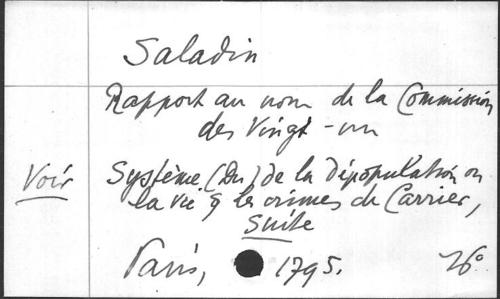 Saladin
Rapport au nom de la Commission
des Vingt-un
Voir Système (Du) de la dépopulation ou
la vie & les crimes de Carrier,
Suite
Paris, 1795.